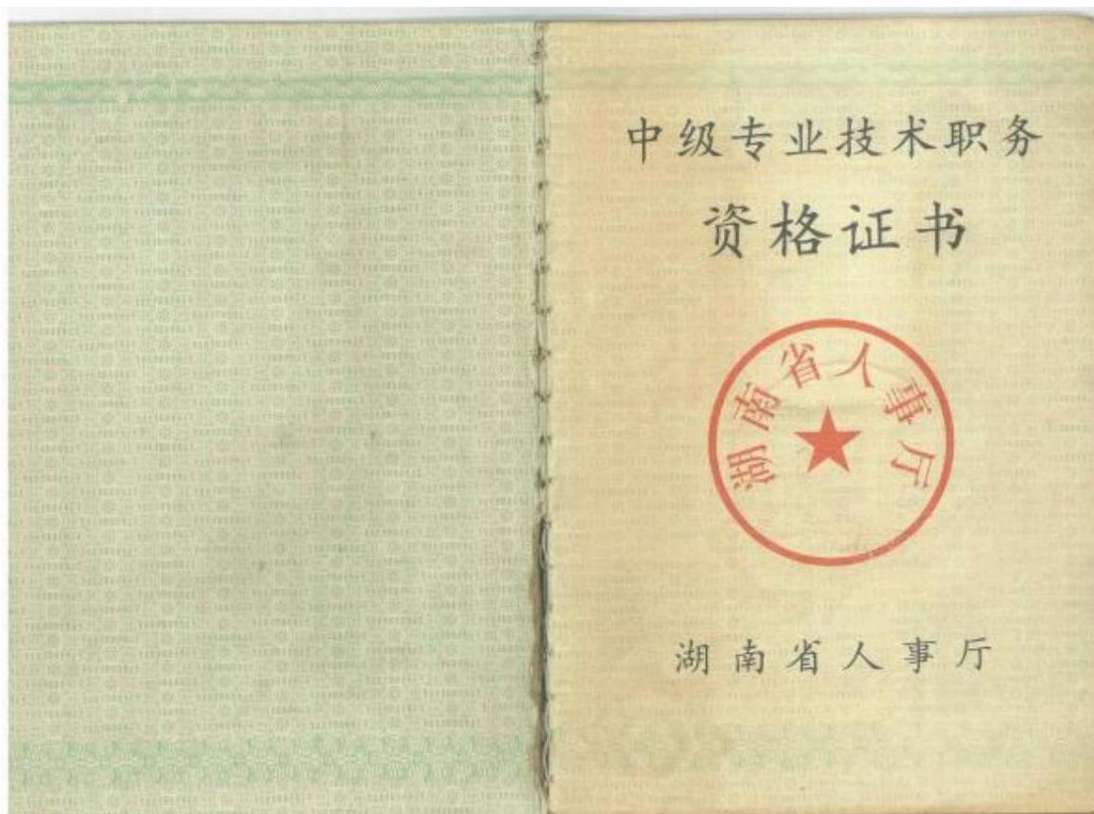 中级专业技术职务
资格证书
湖南省人事厅
湖南省人事厅